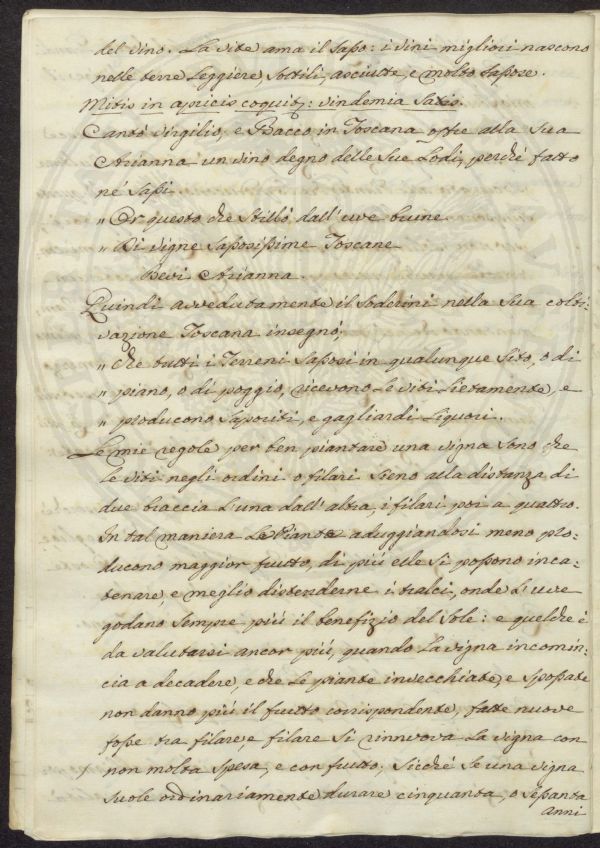 del vino. La vite ama il sapo: i vini migliori nascono
nelle terre leggiere, sottili, asciutte, e molto sassose.
Mitis in apricis coquitz: vindemia saxis.
Cantò Virgilio, e Bacco in Toscana offre alla sua
Arianna un vino degno delle sue lodi, perché fatto
né sassi
" Or questo che stillò dall'uve brune
" Di vigne sassosissime Toscane
Bevi Arianna.
Quindi avvedutamente il Soderini nella sua colti-
vazione Toscana insegnó,
" Che tutti i Terreni sassosi in qualunque sito, o di
" piano, o di poggio, ricevono le viti lietamente, e
" producono saporiti, e gagliardi liquori.
Le mie regole per ben piantare una vigna sono che
le viti negli ordini o filari sieno alla distanza di
due braccia l'una dall'altra, i filari poi a quattro.
In tal maniera le Piante aduggiandosi meno pro-
ducono maggior frutto, di piú elle si possono inca-
tenare, e meglio distenderne i tralci, onde l'uve
godano sempre piú il benefizio del sole: e quelche è
da valutarsi ancor piú, quando la vigna incomin-
cia a decadere, e che le piante invecchiate, e spossate
non danno piú il frutto corrispondente, fatte nuove
fosse tra filare, e filare si rinnuova la vigna con
non molta spesa, e con frutto, sicché se una vigna
suole ordinariamente durare cinquanta, o sessanta
anni